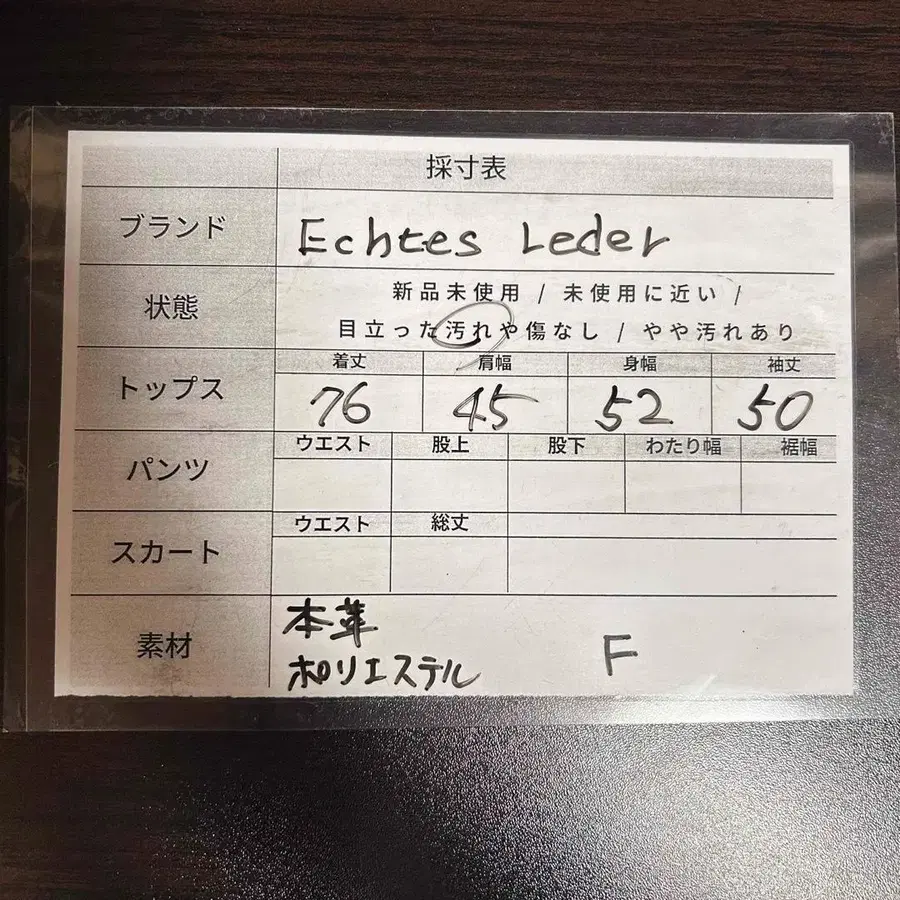 採寸表
ブランド Echtes Leder
状態 新品未使用 / 未使用に近い /
目立った汚れや傷なし / やや汚れあり
トップス 着丈 肩幅 身幅 袖丈
76 45 52 50
パンツ ウエスト 股上 股下 わたり幅 裾幅
スカート ウエスト 総丈
素材 本革 F
ポリエステル